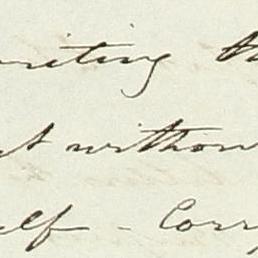 writing th
t without
elf - Corr